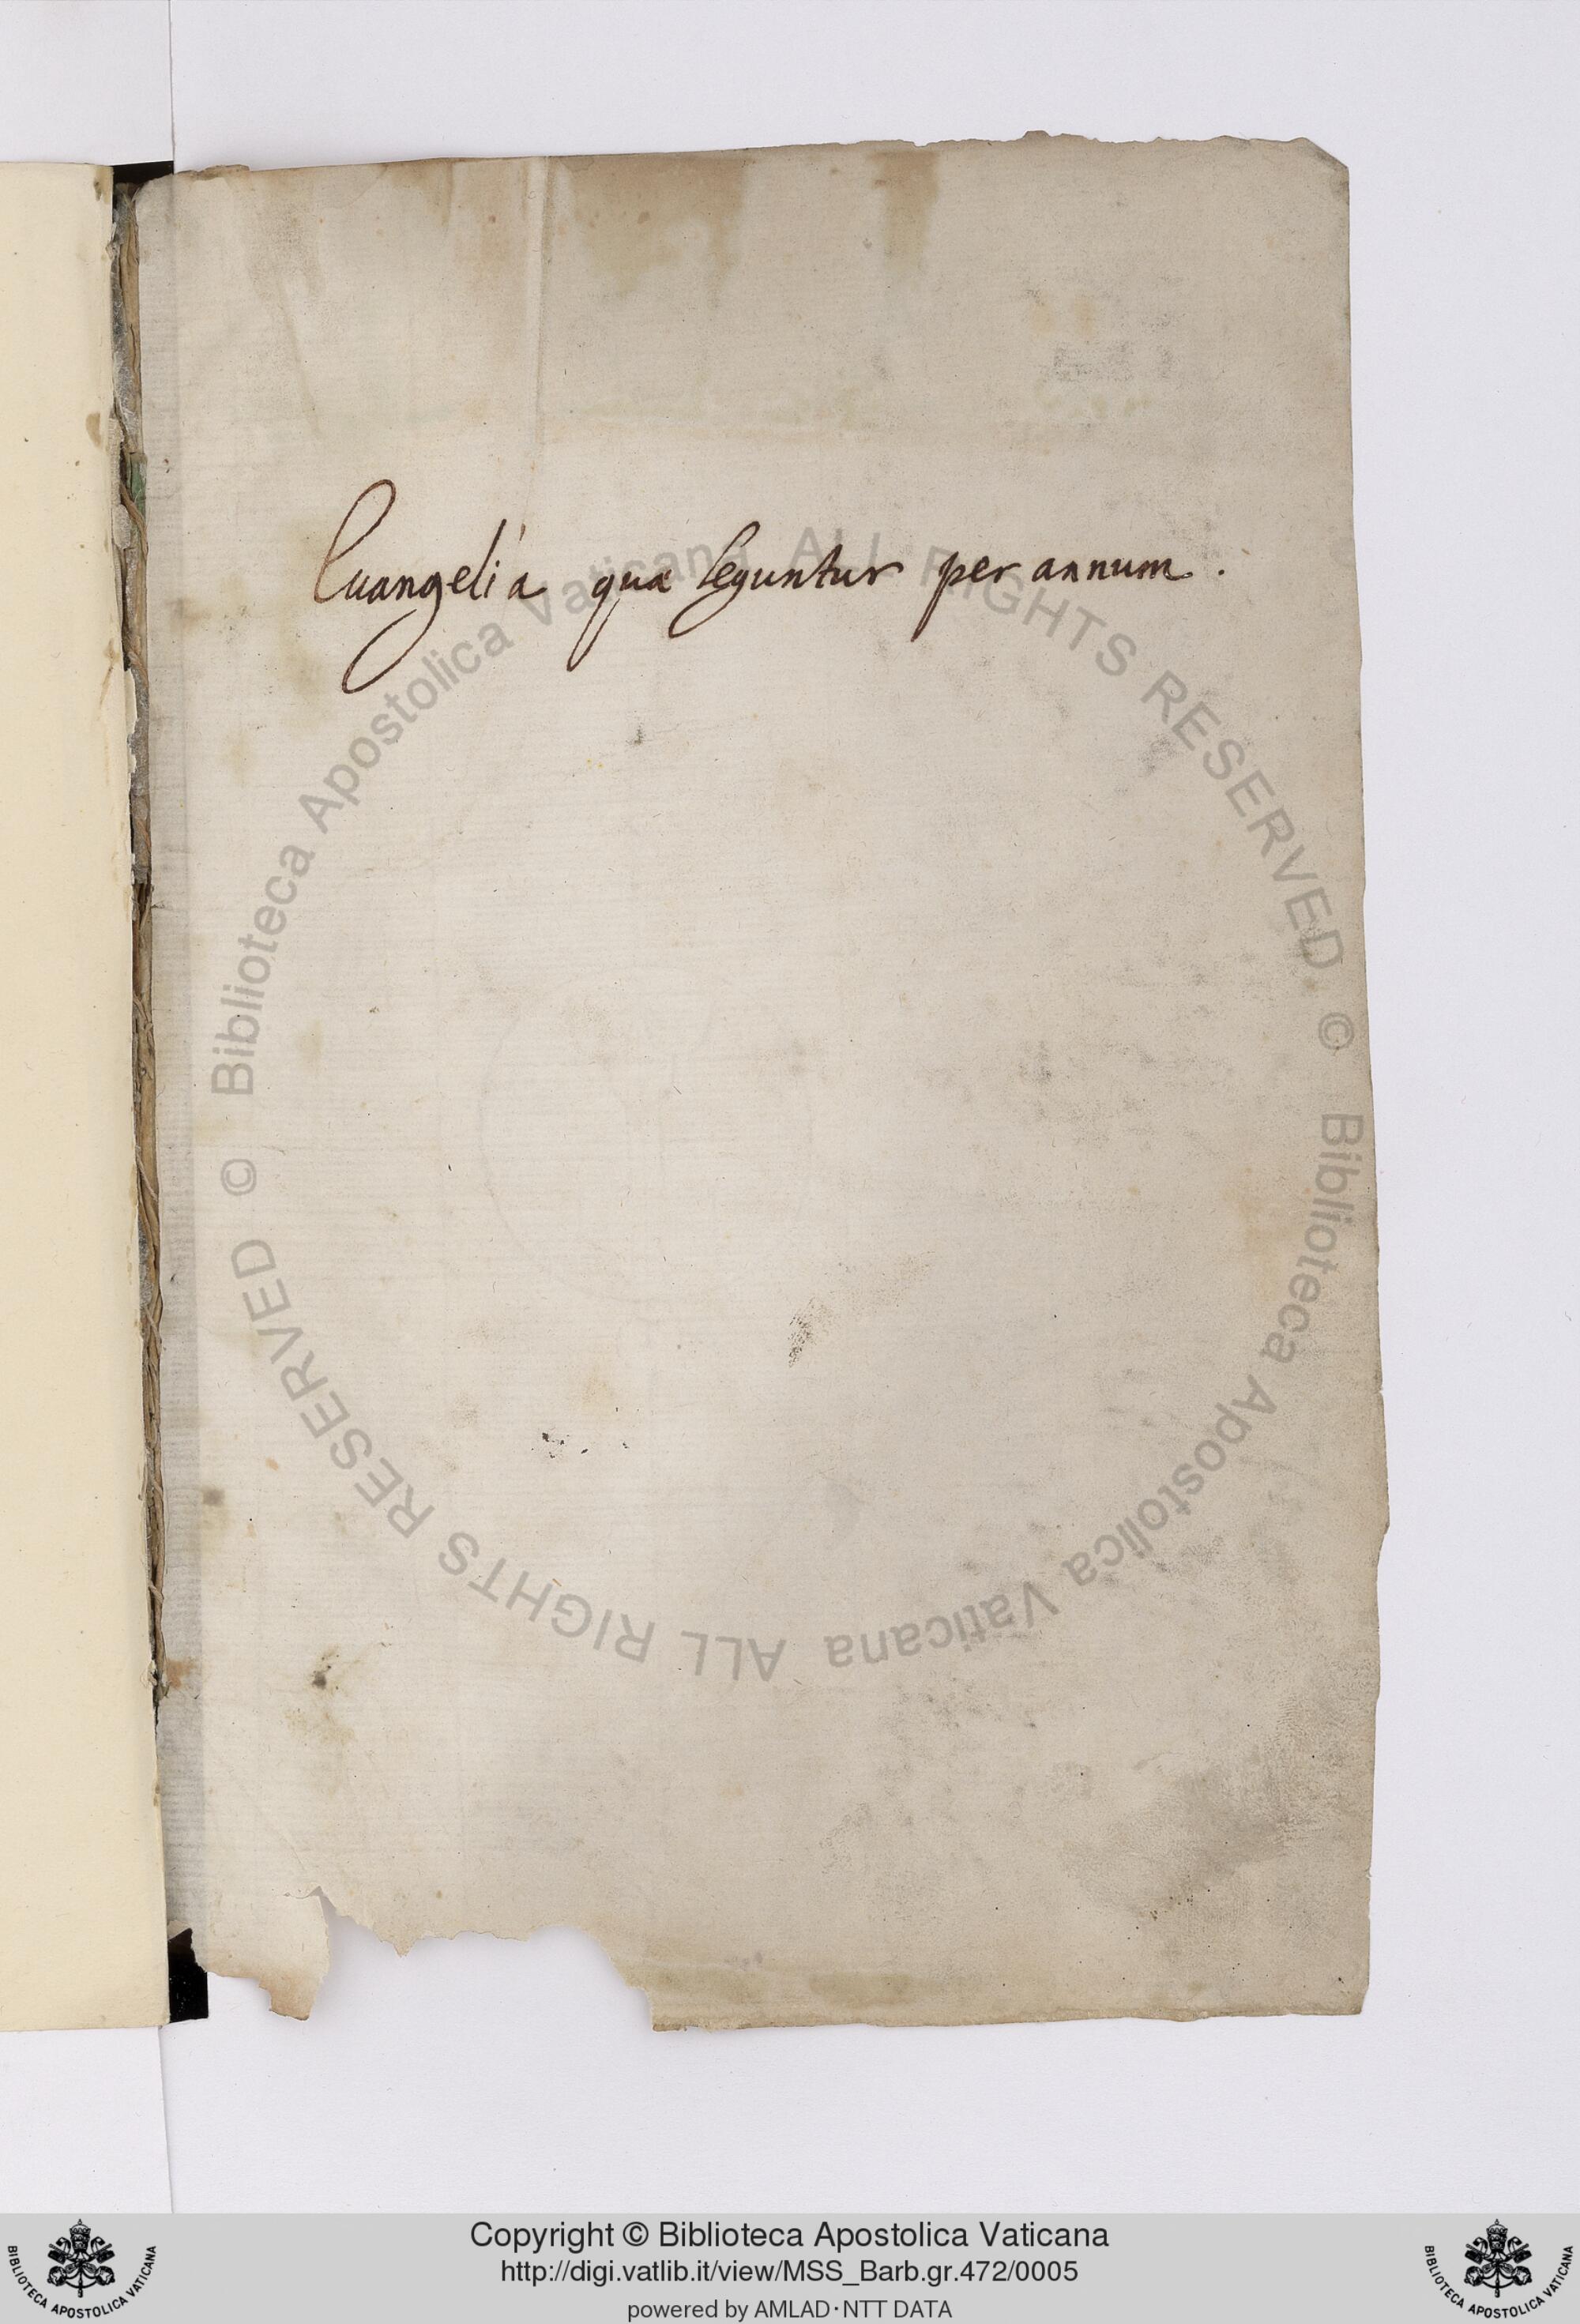 Euangelia quæ leguntur per annum.
© Biblioteca Apostolica Vaticana ALL RIGHTS RESERVED © Biblioteca Apostolica Vaticana ALL RIGHTS RESERVED
BIBLIOTECA APOSTOLICA VATICANA
Copyright © Biblioteca Apostolica Vaticana
http://digi.vatlib.it/view/MSS_Barb.gr.472/0005
powered by AMLAD·NTT DATA
BIBLIOTECA APOSTOLICA VATICANA